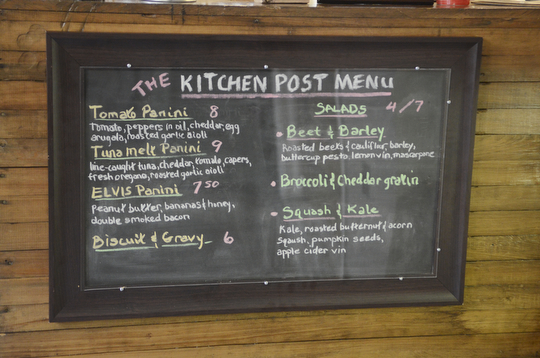 THE KITCHEN POST MENU
Tomato Panini 8
Tomato, peppers in oil, cheddar, egg
arugola, roasted garlic aioli
Tuna melt Panini 9
line-caught tuna, cheddar, tomato, capers,
fresh oregano, roasted garlic aioli
ELVIS Panini 7 50
Peanut butter, bananas & honey,
double smoked bacon
Biscuit & Gravy 6
SALADS 4/7
• Beet & Barley
Roasted beets & cauliflwr, barley,
buttercup pesto, lemon vin, mascarpone
• Broccoli & Cheddar gratin
• Squash & Kale
Kale, roasted butternut & acorn
squash, pumpkin seeds,
apple cider vin